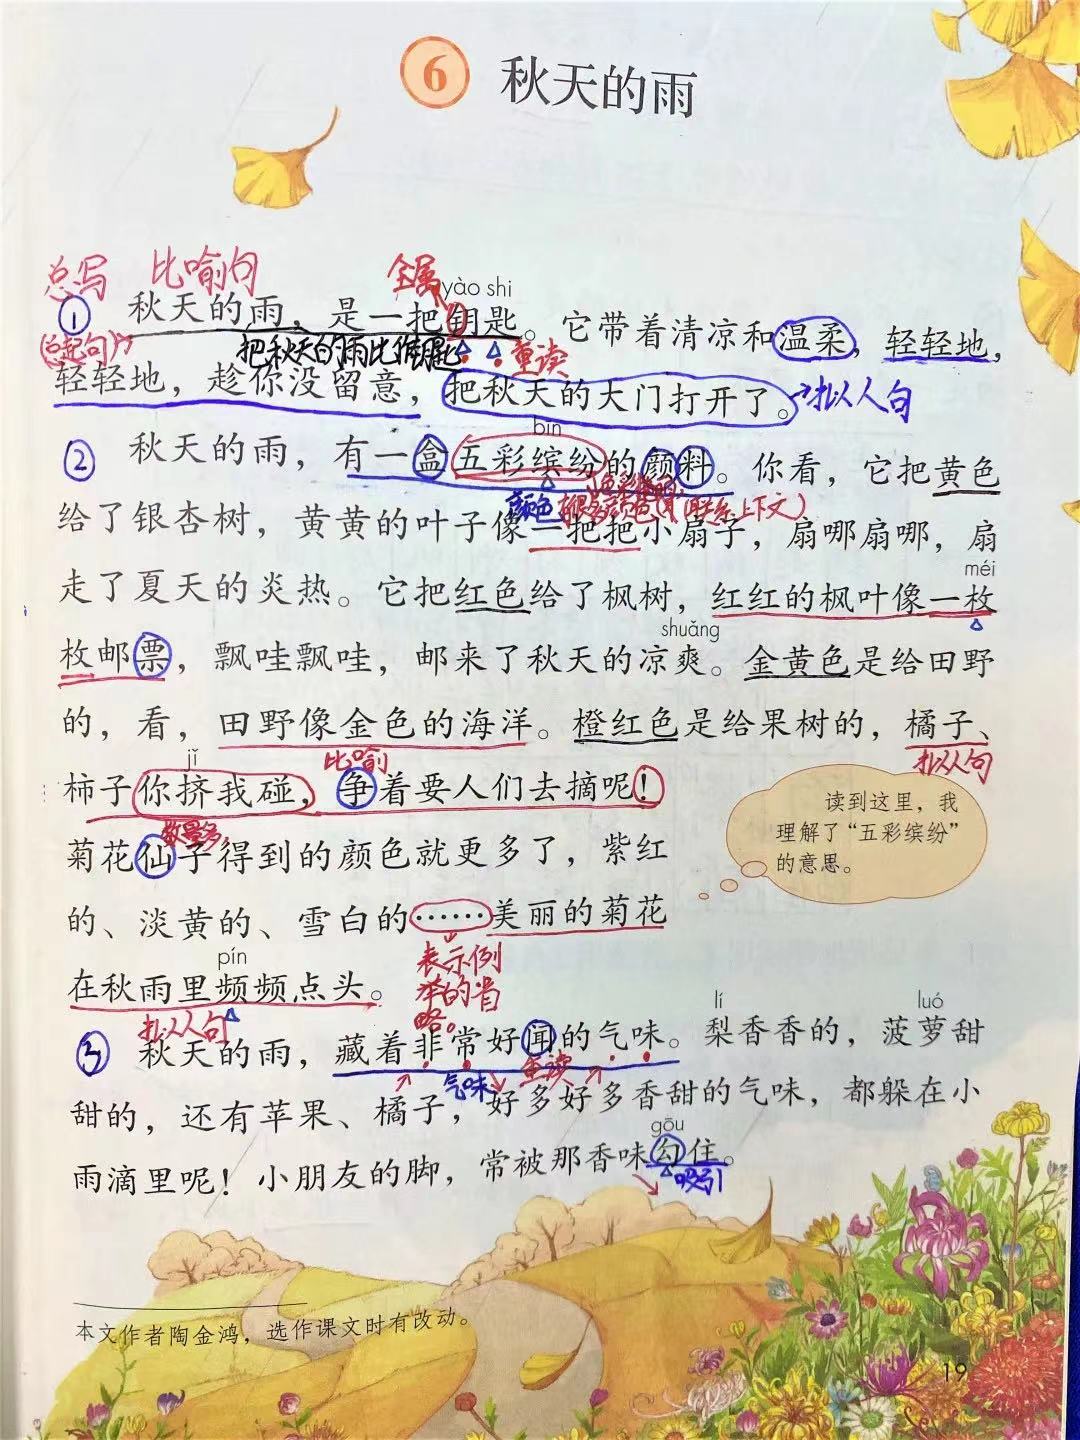 6 秋天的雨
总写 比喻句 金属
yào shi
① 秋天的雨，是一把钥匙。它带着清凉和温柔，轻轻地，
(总起句) 把秋天的雨比作钥匙 重读
轻轻地，趁你没留意，把秋天的大门打开了。→拟人句
bīn
② 秋天的雨，有一盒五彩缤纷的颜料。你看，它把黄色
颜色 很多颜色 (联系上下文)
给了银杏树，黄黄的叶子像一把把小扇子，扇哪扇哪，扇
méi
走了夏天的炎热。它把红色给了枫树，红红的枫叶像一枚
shuǎng
枚邮票，飘哇飘哇，邮来了秋天的凉爽。金黄色是给田野
的，看，田野像金色的海洋。橙红色是给果树的，橘子、
jǐ 比喻 拟人句
柿子你挤我碰，争着要人们去摘呢！
数量多
菊花仙子得到的颜色就更多了，紫红
的、淡黄的、雪白的……美丽的菊花
pín
在秋雨里频频点头。
读到这里，我
理解了“五彩缤纷”
的意思。
表示列
举的省
略。
拟人句
lí luó
③ 秋天的雨，藏着非常好闻的气味。梨香香的，菠萝甜
气味 重读
甜的，还有苹果、橘子，好多好多香甜的气味，都躲在小
gōu
雨滴里呢！小朋友的脚，常被那香味勾住。
吸引
本文作者陶金鸿，选作课文时有改动。
19